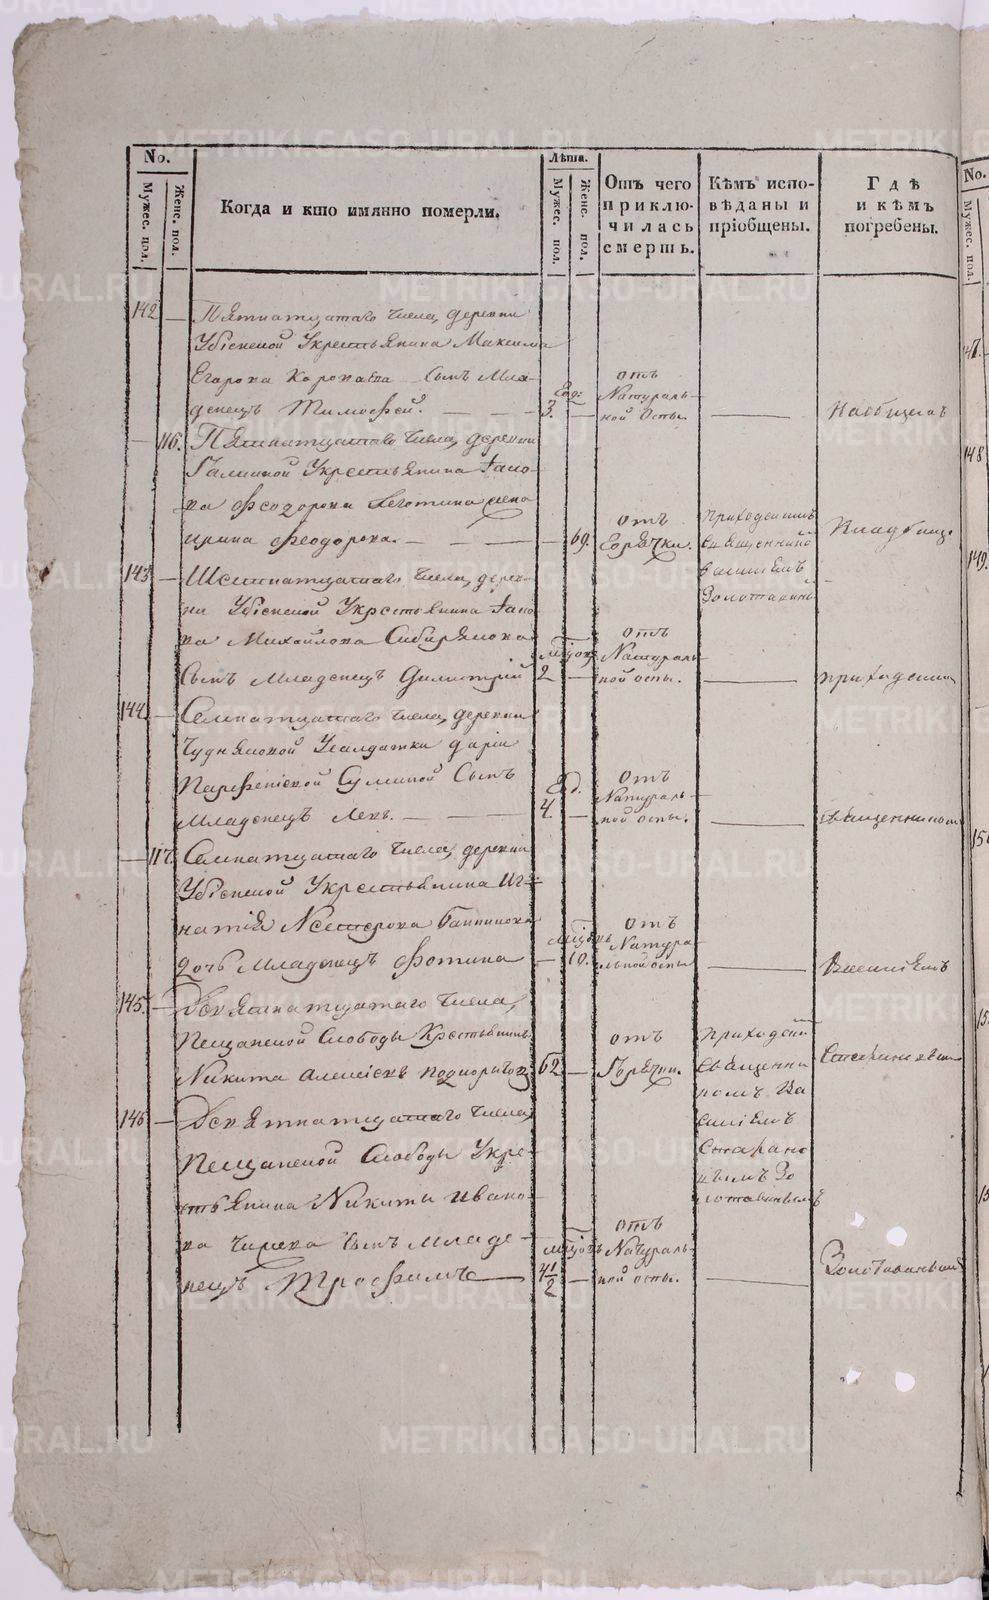 No.
Мужес. пол.
Женс. пол.
Когда и кто имянно померли.
Лѣта.
Мужес. пол.
Женс. пол.
Отъ чего
приклю-
чилась
смерть.
Кѣмъ испо-
вѣданы и
пріобщены.
Гдѣ
и кѣмъ
погребены.
No.
Мужес. пол.
142 — Пятнатцатаго числа, деревни
Убіенной Укрестьянина Максима
Егорова сынъ Мла-
денецъ Тимофей. — — —
Год:
3. —
отъ
Натураль-
ной оспы.
—
На общемъ
— 116. Пятнатцатаго числа, деревни
Галкиной Укрестьянина Іако-
ва Феодорова жена
Ирина Феодорова. — — —
— 69.
отъ
Горячки.
приходскимъ
священникомъ
Золотавинъ
Кладбище
143 — Шестнатцатаго числа, дерев-
ни Укрестьянина Іако-
ва Михайлова Сибирякова
Сынъ Младенецъ Димитрій
мѣсяц
2 —
отъ
Натураль-
ной оспы.
—
приходскимъ
144. — Семнатцатаго числа, деревни
Чудняковой Усалдатки Дарьи
Сынъ
Младенецъ Левъ. — — —
Год.
4. —
отъ
Натураль-
ной оспы.
—
священникомъ
— 117. Семнатцатаго числа, деревни
Укрестьянина Иг-
натія Нестерова
дочь Младенецъ Фотина
мѣсяцовъ
— 10.
отъ
Натура-
льной оспы
—
Василіемъ
145. — Девятнатцатаго числа,
Пещанской Слободы Крестьянинъ
Никита Алексіевъ
62 —
отъ
Горячки.
приходски
священни
комъ Ва
силіемъ
Старано
вымъ Зо
лотавинымъ
146 — Девятнатцатаго числа,
Пещанской Слободы Укре-
стьянина Никиты Ивано-
ва сынъ Младе-
нецъ Трофимъ —
мѣсяцовъ
4 1/2 —
отъ
Натураль-
ной оспы.
—
Золотавинымъ
147.
148
149.
METRIKI.GASO-URAL.RU